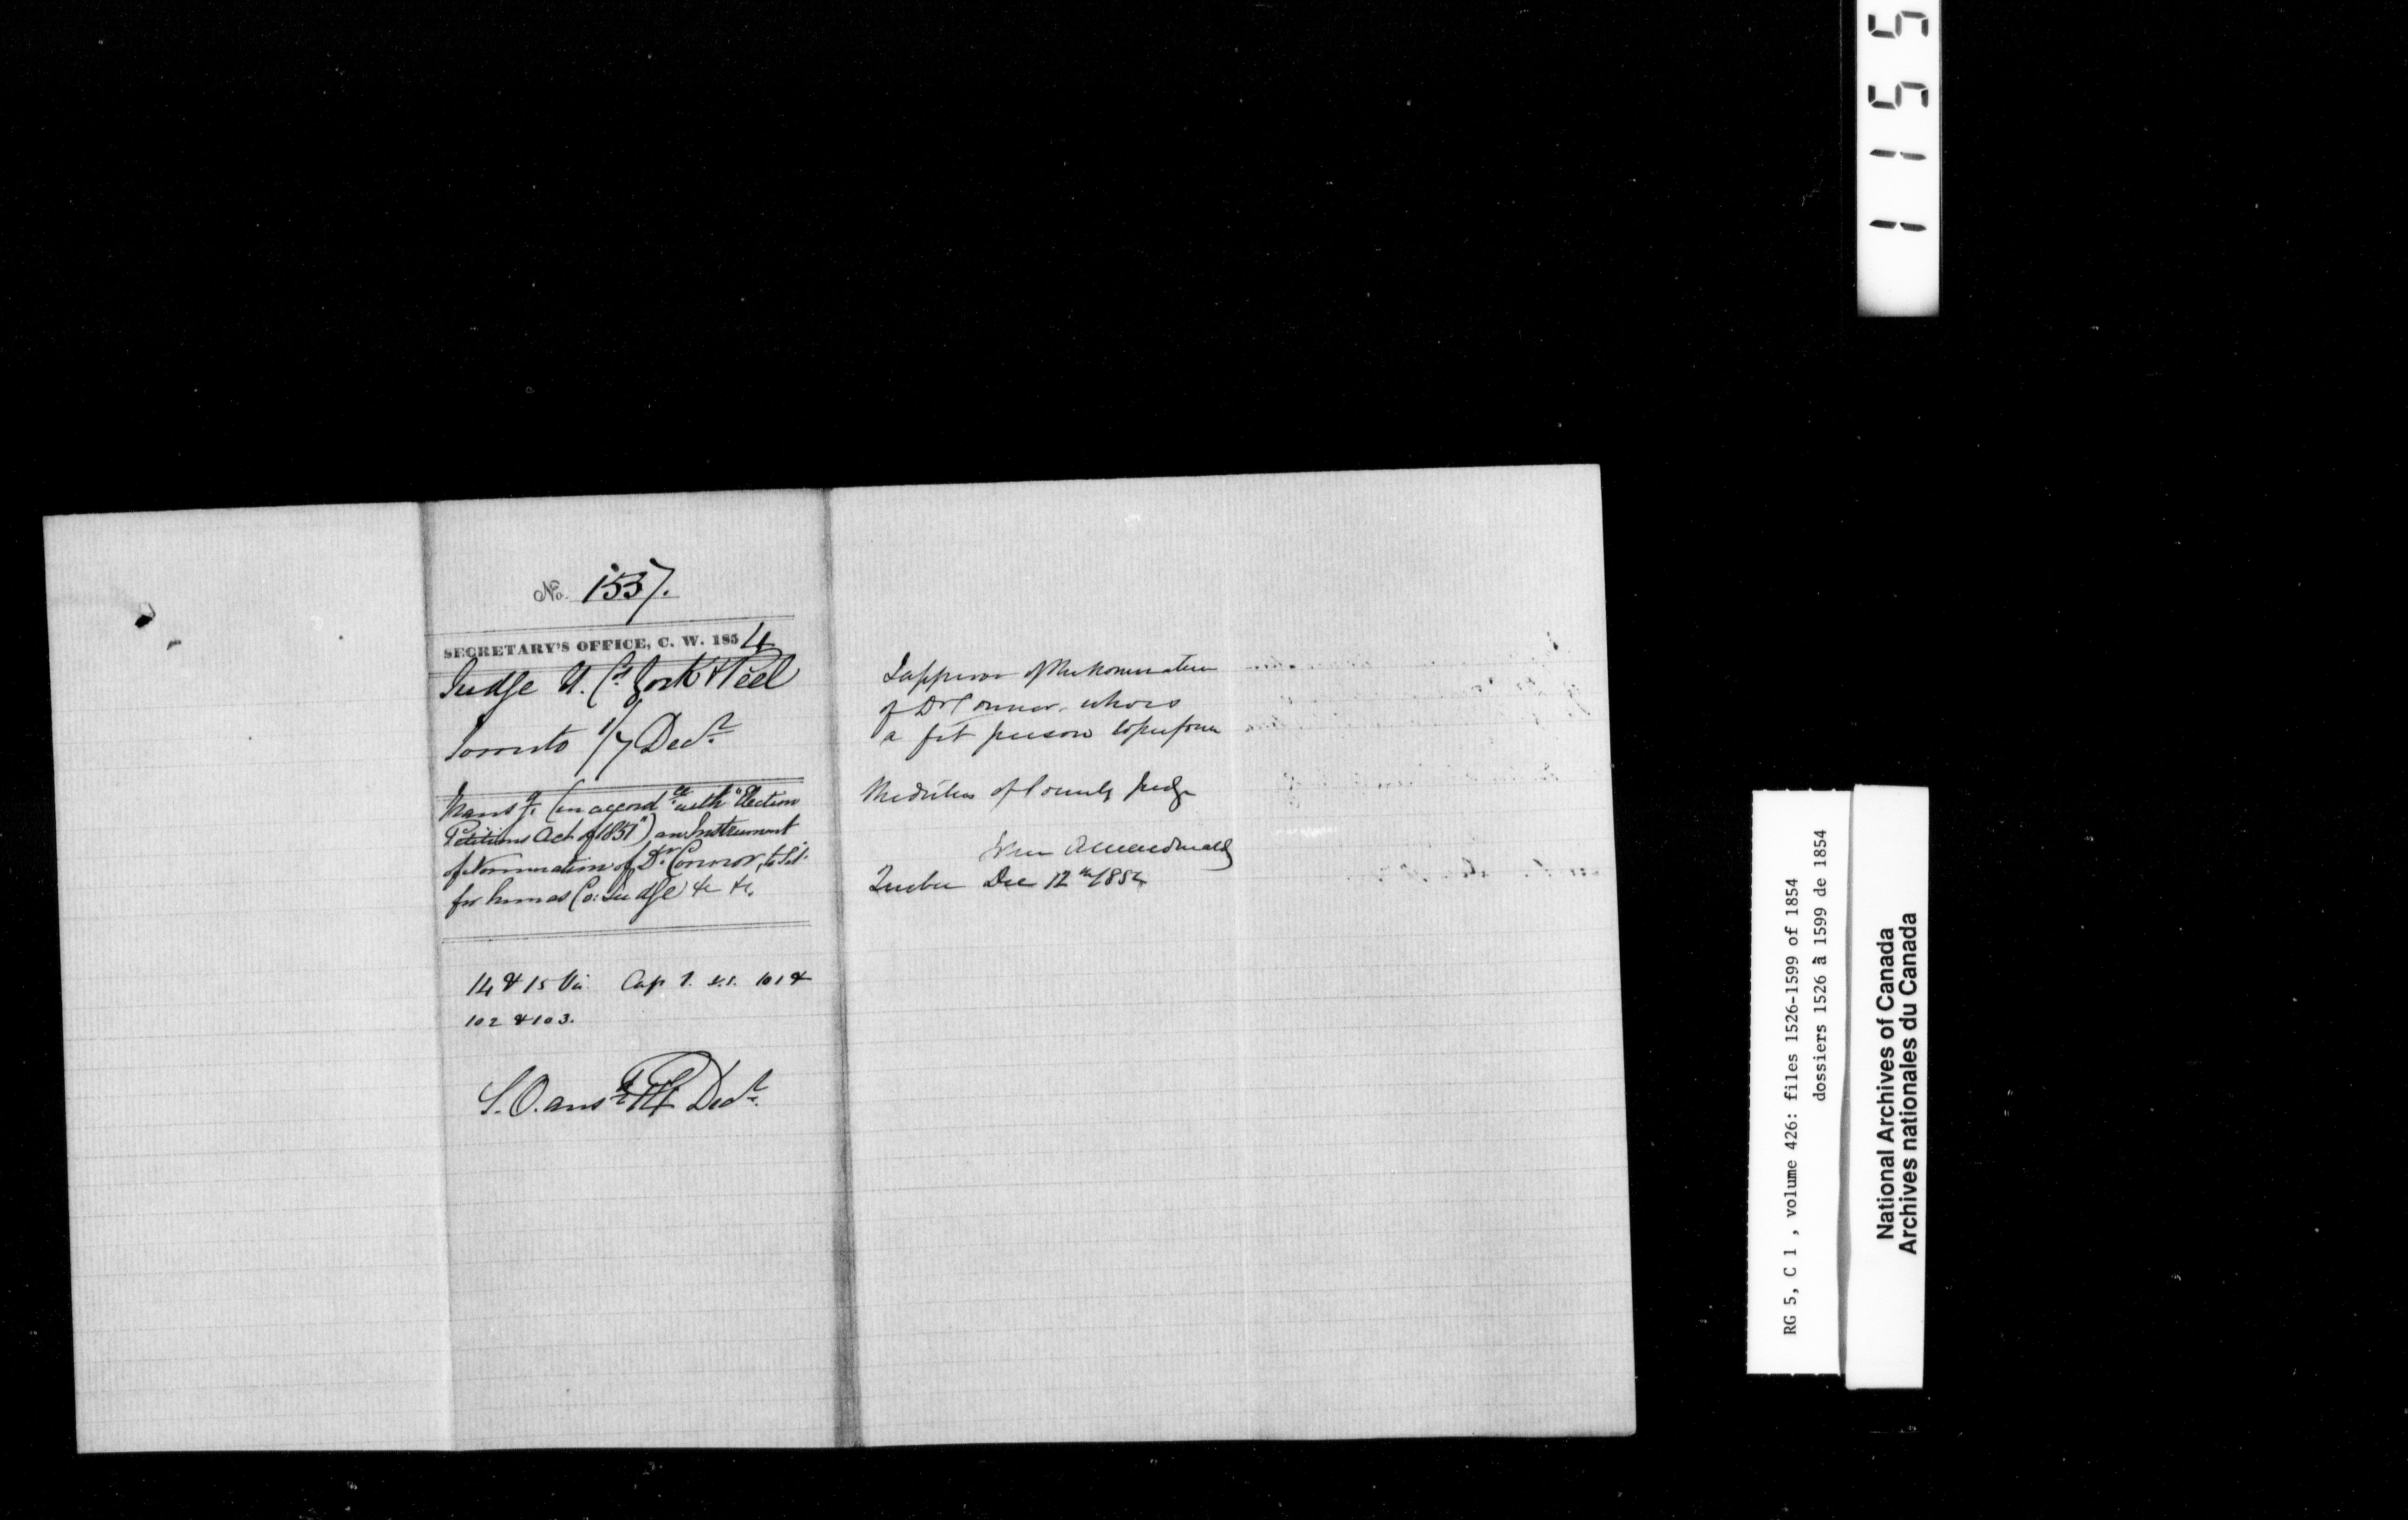 No. 1537.
SECRETARY'S OFFICE, C. W. 1854
Judge U. Cs York & Peel
Toronto 1/7 Decr.
Transg. (in accordce with "Election
Petitions Act of 1851") an Instrument
of Nomination of Dr. Connor, to sit
for him as Co: Judge &c &c.
14 & 15 Vic. Cap 1. s.s. 101 &
102 & 103.
S. O. ansd 14 Decr.
I approve of the nomination
of Dr Connor who is
a fit person to perform
the duties of County Judge
John A Macdonald
Quebec Dec 12th 1854
1155
RG 5, C 1 , volume 426: files 1526-1599 of 1854
dossiers 1526 à 1599 de 1854
National Archives of Canada
Archives nationales du Canada